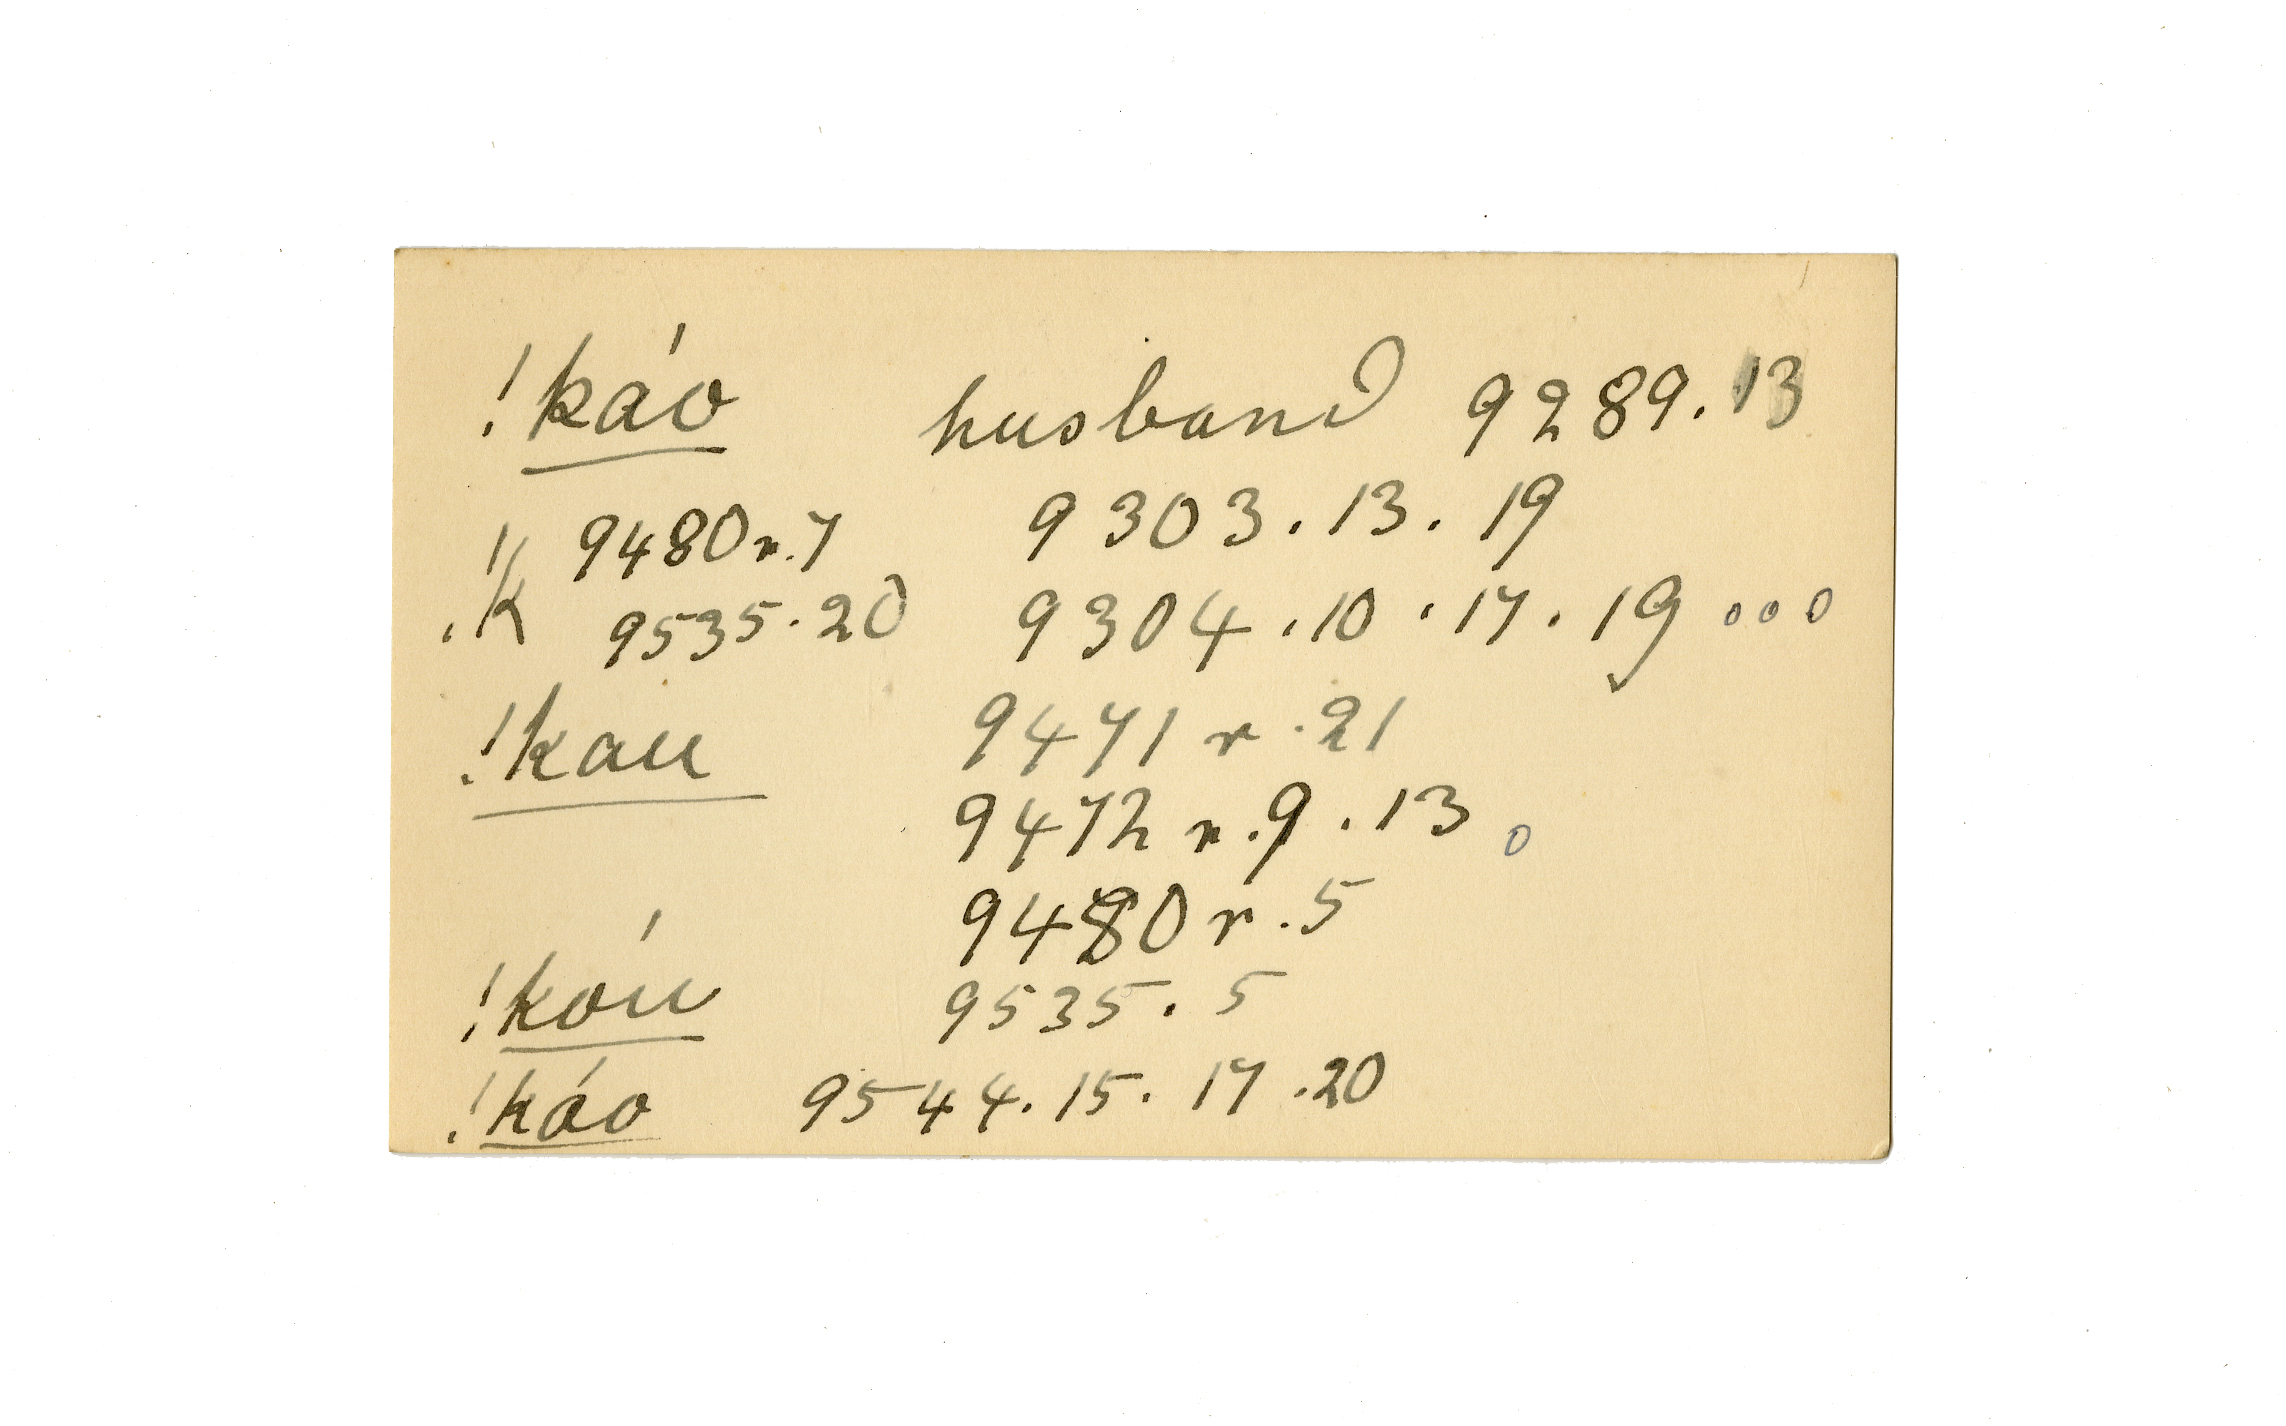 !káo husband 9289.13
9480r.7 9303.13.19
!k 9535.20 9304.10.17.19 ooo
!kau 9471r.21
9472r.9.13 o
9480r.5
!kóu 9535.5
!káo 9544.15.17.20